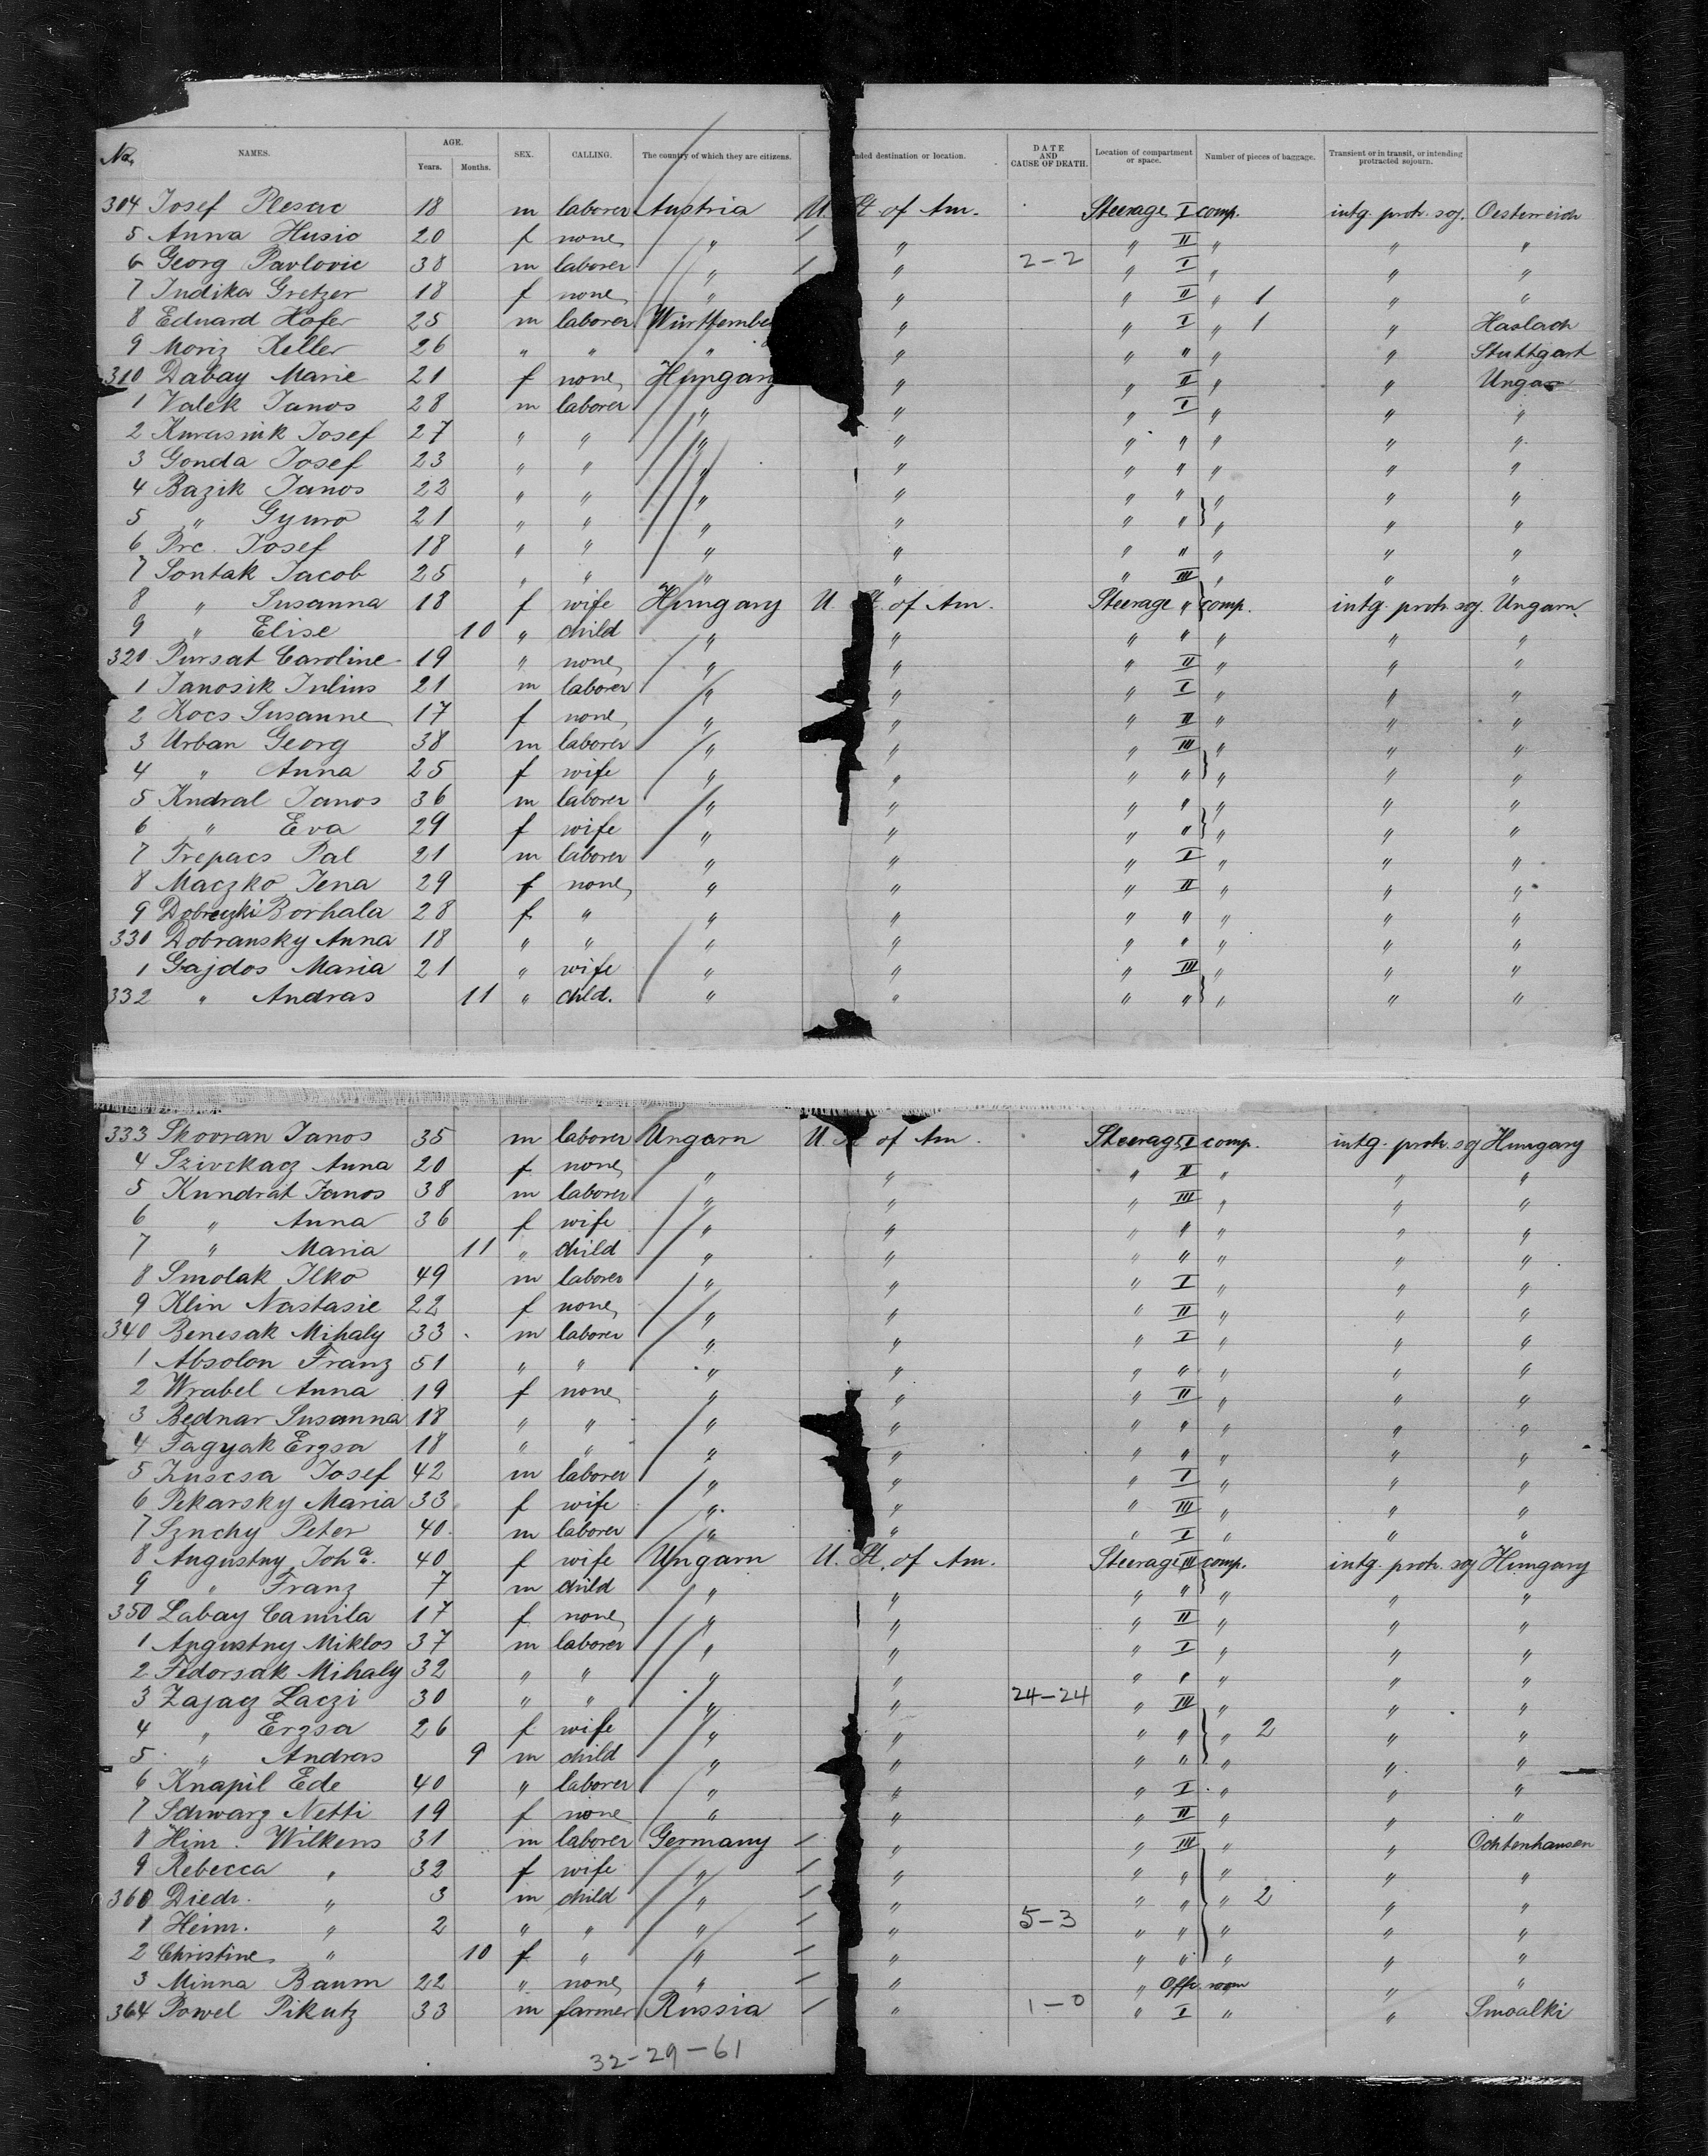 No. NAMES. AGE. Years. Months. SEX. CALLING. The country of which they are citizens. nded destination or location. DATE AND CAUSE OF DEATH. Location of compartment or space. Number of pieces of baggage. Transient or in transit, or intending protracted sojourn.
304 Josef Plesac 18 m laborer Austria U. St. of Am. Steerage I comp. intg. protr. soj. Oesterreich
5 Anna Husic 20 f none " " " II " " "
6 Georg Pavlovic 38 m laborer " " 2-2 " I " " "
7 Indika Gretzer 18 f none " " " II " 1 " "
8 Eduard Hofer 25 m laborer Württembe " " I " 1 " Haslach
9 Moriz Keller 26 " " " " " " " " Stuttgart
310 Dabay Marie 21 f none Hungary " " II " " Ungar
1 Valek Janos 28 m laborer " " " I " " "
2 Kurasnik Josef 27 " " " " " " " " "
3 Gonda Josef 23 " " " " " " " " "
4 Bazik Janos 22 " " " " " " " " "
5 " Gyuro 21 " " " " " " " " "
6 Prc. Josef 18 " " " " " " " " "
7 Sontak Jacob 25 " " " " " III " " "
8 " Susanna 18 f wife Hungary U. St. of Am. Steerage " comp. intg. protr. soj. Ungarn.
9 " Elise 10 " child " " " " " " "
320 Pursat Caroline 19 " none " " " II " " "
1 Janosik Julius 21 m laborer " " " I " " "
2 Kocs Susanne 17 f none " " " II " " "
3 Urban Georg 38 m laborer " " " III " " "
4 " Anna 25 f wife " " " " " " "
5 Kndral Janos 36 m laborer " " " " " " "
6 " Eva 29 f wife " " " " " " "
7 Trepacs Pal 21 m laborer " " " I " " "
8 Maczko Jena 29 f none " " " II " " "
9 Dobreczki Borhala 28 f " " " " " " " "
330 Dobransky Anna 18 " " " " " " " " "
1 Gajdos Maria 21 " wife " " " III " " "
332 " Andras 11 " chld. " " " " " " "
333 Skovran Janos 35 m laborer Ungarn U. St. of Am. Steerage I comp. intg. protr. soj Hungary
4 Szivckacz Anna 20 f none " " " II " " "
5 Kundrat Janos 38 m laborer " " " III " " "
6 " Anna 36 f wife " " " " " " "
7 " Maria 11 " child " " " " " " "
8 Smolak Ilko 49 m laborer " " " I " " "
9 Klin Nastasie 22 f none " " " II " " "
340 Benesak Mihaly 33 m laborer " " " I " " "
1 Absolon Franz 51 " " " " " " " " "
2 Wrabel Anna 19 f none " " " II " " "
3 Bednar Susanna 18 " " " " " " " " "
4 Fagyak Erzsa 18 " " " " " " " " "
5 Kuscsa Josef 42 m laborer " " " I " " "
6 Pekarsky Maria 33 f wife " " " III " " "
7 Sznchy Peter 40 m laborer " " " I " " "
8 Augustny Joha. 40 f wife Ungarn U. St. of Am. Steerage III comp. intg. protr. soj Hungary
9 " Franz 7 m child " " " " " " "
350 Labay Camila 17 f none " " " II " " "
1 Augustny Miklos 37 m laborer " " " I " " "
2 Fedorsak Mihaly 32 " " " " " " " " "
3 Zajacz Laczi 30 " " " " 24-24 " III " " "
4 " Erzsa 26 f wife " " " " " 2 " "
5 " Andras 9 m child " " " " " " "
6 Knapil Ede 40 " laborer " " " I " " "
7 Schwarz Netti 19 f none " " " II " " "
8 Hinr. Wilkens 31 m laborer Germany " " III " " Ochtenhausen
9 Rebecca " 32 f wife " " " " " " "
360 Diedr. " 3 m child " " " " " 2 " "
1 Heinr. " 2 " " " " 5-3 " " " " "
2 Christine " 10 f " " " " " " " "
3 Minna Baum 22 " none " " " Offr. room " "
364 Powel Pikutz 33 m farmer Russia " 1-0 " I " " Smoalki
32-29-61